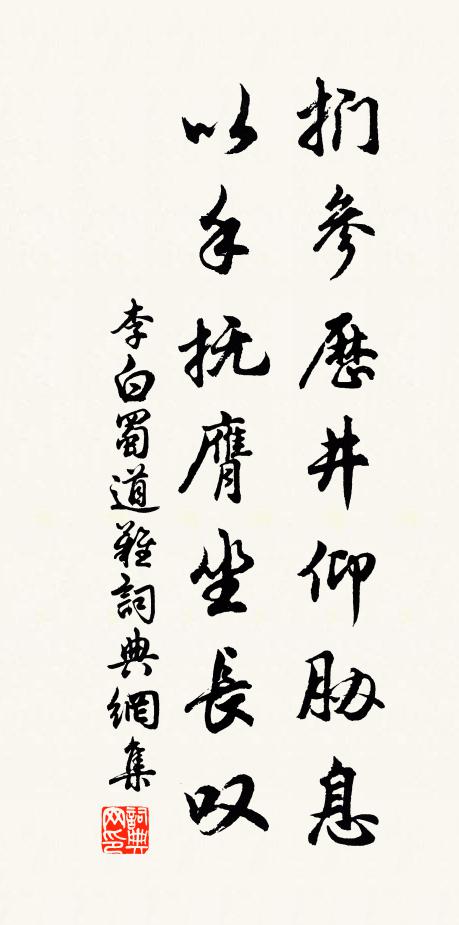 扪參歷井仰胁息
以手抚膺坐長叹
李白蜀道難詞典網集
詞典网印